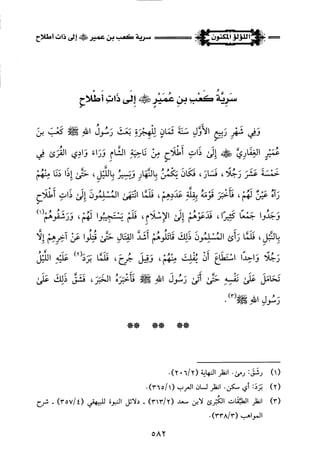 اللؤلؤ المكنون
سرية كعب بن عمير ﷺ إلى ذات أطلاح
سَرِيَّةُ كَعْبِ بنِ عُمَيْرٍ ﷺ إلَى ذَاتِ أَطْلَاحٍ
وَفِي شَهْرِ رَبِيعٍ الأَوَّلِ سَنَةَ ثَمَانٍ لِلْهِجْرَةِ بَعَثَ رَسُولُ اللهِ ﷺ كَعْبَ بنَ
عُمَيْرٍ الغِفَارِيَّ ﷺ إِلَى ذَاتِ أَطْلَاحٍ مِنْ نَاحِيَةِ الشَّامِ وَرَاءَ وَادِي القُرَى فِي
خَمْسَةَ عَشَرَ رَجُلًا، فَسَارَ، فَكَانَ يَكْمُنُ بِالنَّهَارِ وَيَسِيرُ بِاللَّيْلِ، حَتَّى إِذَا دَنَا مِنْهُمْ
رَآهُ عَيْنٌ لَهُمْ، فَأَخْبَرَ قَوْمَهُ بِقِلَّةِ عَدَدِهِمْ، فَلَمَّا انْتَهَى المُسْلِمُونَ إِلَى ذَاتِ أَطْلَاحٍ
وَجَدُوا جَمْعًا كَثِيرًا، فَدَعَوْهُمْ إِلَى الإِسْلَامِ، فَلَمْ يَسْتَجِيبُوا لَهُمْ، وَرَشَقُوهُمْ(١)
بِالنَّبْلِ، فَلَمَّا رَأَى المُسْلِمُونَ ذَلِكَ قَاتَلُوهُمْ أَشَدَّ القِتَالِ حَتَّى قُتِلُوا عَنْ آخِرِهِمْ إِلَّا
رَجُلًا وَاحِدًا اسْتَطَاعَ أَنْ يُفْلِتَ مِنْهُمْ، وَقِيلَ جُرِحَ، فَلَمَّا بَرَدَ(٢) عَلَيْهِ اللَّيْلُ
تَحَامَلَ عَلَى نَفْسِهِ حَتَّى أَتَى رَسُولَ اللهِ ﷺ فَأَخْبَرَهُ الخَبَرَ، فَشَقَّ ذَلِكَ عَلَى
رَسُولِ اللهِ ﷺ(٣).
** ** **
(١) رشَقَ: رمى. انظر النهاية (٢٠٦/٢).
(٢) بَرَدَ: أي سكن. انظر لسان العرب (٣٦٥/١).
(٣) انظر الطبَّقات الكُبْرى لابن سعد (٣١٣/٢) ـ دلائل النبوة للبيهقي (٣٥٧/٤) ـ شرح
المواهب (٣٣٨/٣).
٥٨٢